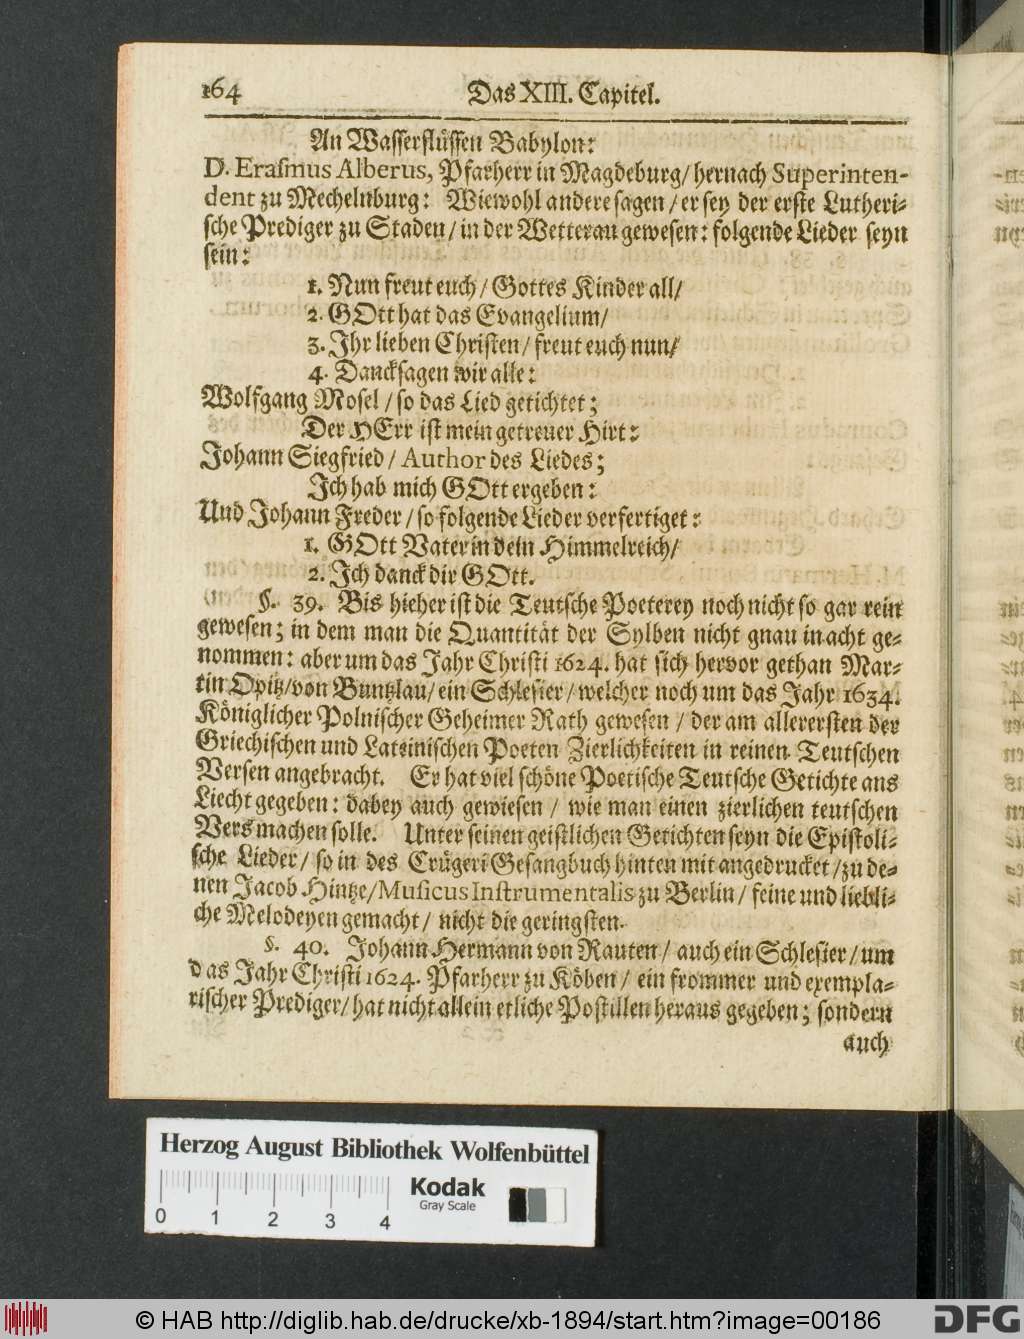 164 Das XIII. Capitel.
An Wasserflüssen Babylon:
D. Erasmus Alberus, Pfarherr in Magdeburg/ hernach Superinten-
dent zu Mechelnburg: Wiewohl andere sagen / er sey der erste Lutheri-
sche Prediger zu Staden / in der Wetterau gewesen: folgende Lieder seyn
sein:
1. Nun freut euch / Gottes Kinder all/
2. GOtt hat das Evangelium/
3. Ihr lieben Christen / freut euch nun/
4. Dancksagen wir alle:
Wolfgang Mosel / so das Lied getichtet;
Der HErr ist mein getreuer Hirt:
Johann Siegfried / Author des Liedes;
Ich hab mich GOtt ergeben:
Und Johann Freder / so folgende Lieder verfertiget:
1. GOtt Vater in dein Himmelreich/
2. Ich danck dir GOtt.
§. 39. Bis hieher ist die Teutsche Poeterey noch nicht so gar rein
gewesen; in dem man die Quantität der Sylben nicht gnau in acht ge-
nommen: aber um das Jahr Christi 1624. hat sich hervor gethan Mar-
tin Opitz/von Buntzlau/ ein Schlesier / welcher noch um das Jahr 1634.
Königlicher Polnischer Geheimer Rath gewesen / der am allerersten der
Griechischen und Lateinischen Poeten Zierlichkeiten in reinen Teutschen
Versen angebracht. Er hat viel schöne Poetische Teutsche Getichte ans
Liecht gegeben: dabey auch gewiesen / wie man einen zierlichen teutschen
Vers machen solle. Unter seinen geistlichen Getichten seyn die Epistoli-
sche Lieder / so in des Crügeri Gesangbuch hinten mit angedrucket / zu de-
nen Jacob Hintze/Musicus Instrumentalis zu Berlin / feine und liebli-
che Melodeyen gemacht / nicht die geringsten.
§. 40. Johann Hermann von Rauten / auch ein Schlesier / um
das Jahr Christi 1624. Pfarherr zu Köben / ein frommer und exempla-
rischer Prediger/ hat nicht allein etliche Postillen heraus gegeben; sondern
auch
Herzog August Bibliothek Wolfenbüttel
Kodak
Gray Scale
0 1 2 3 4
© HAB http://diglib.hab.de/drucke/xb-1894/start.htm?image=00186
DFG